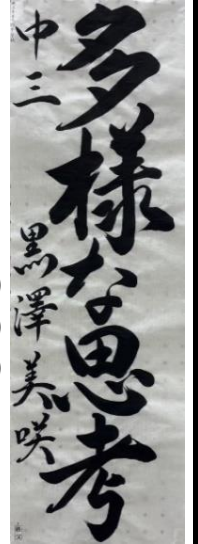 多様な思考
中三 黒澤美咲